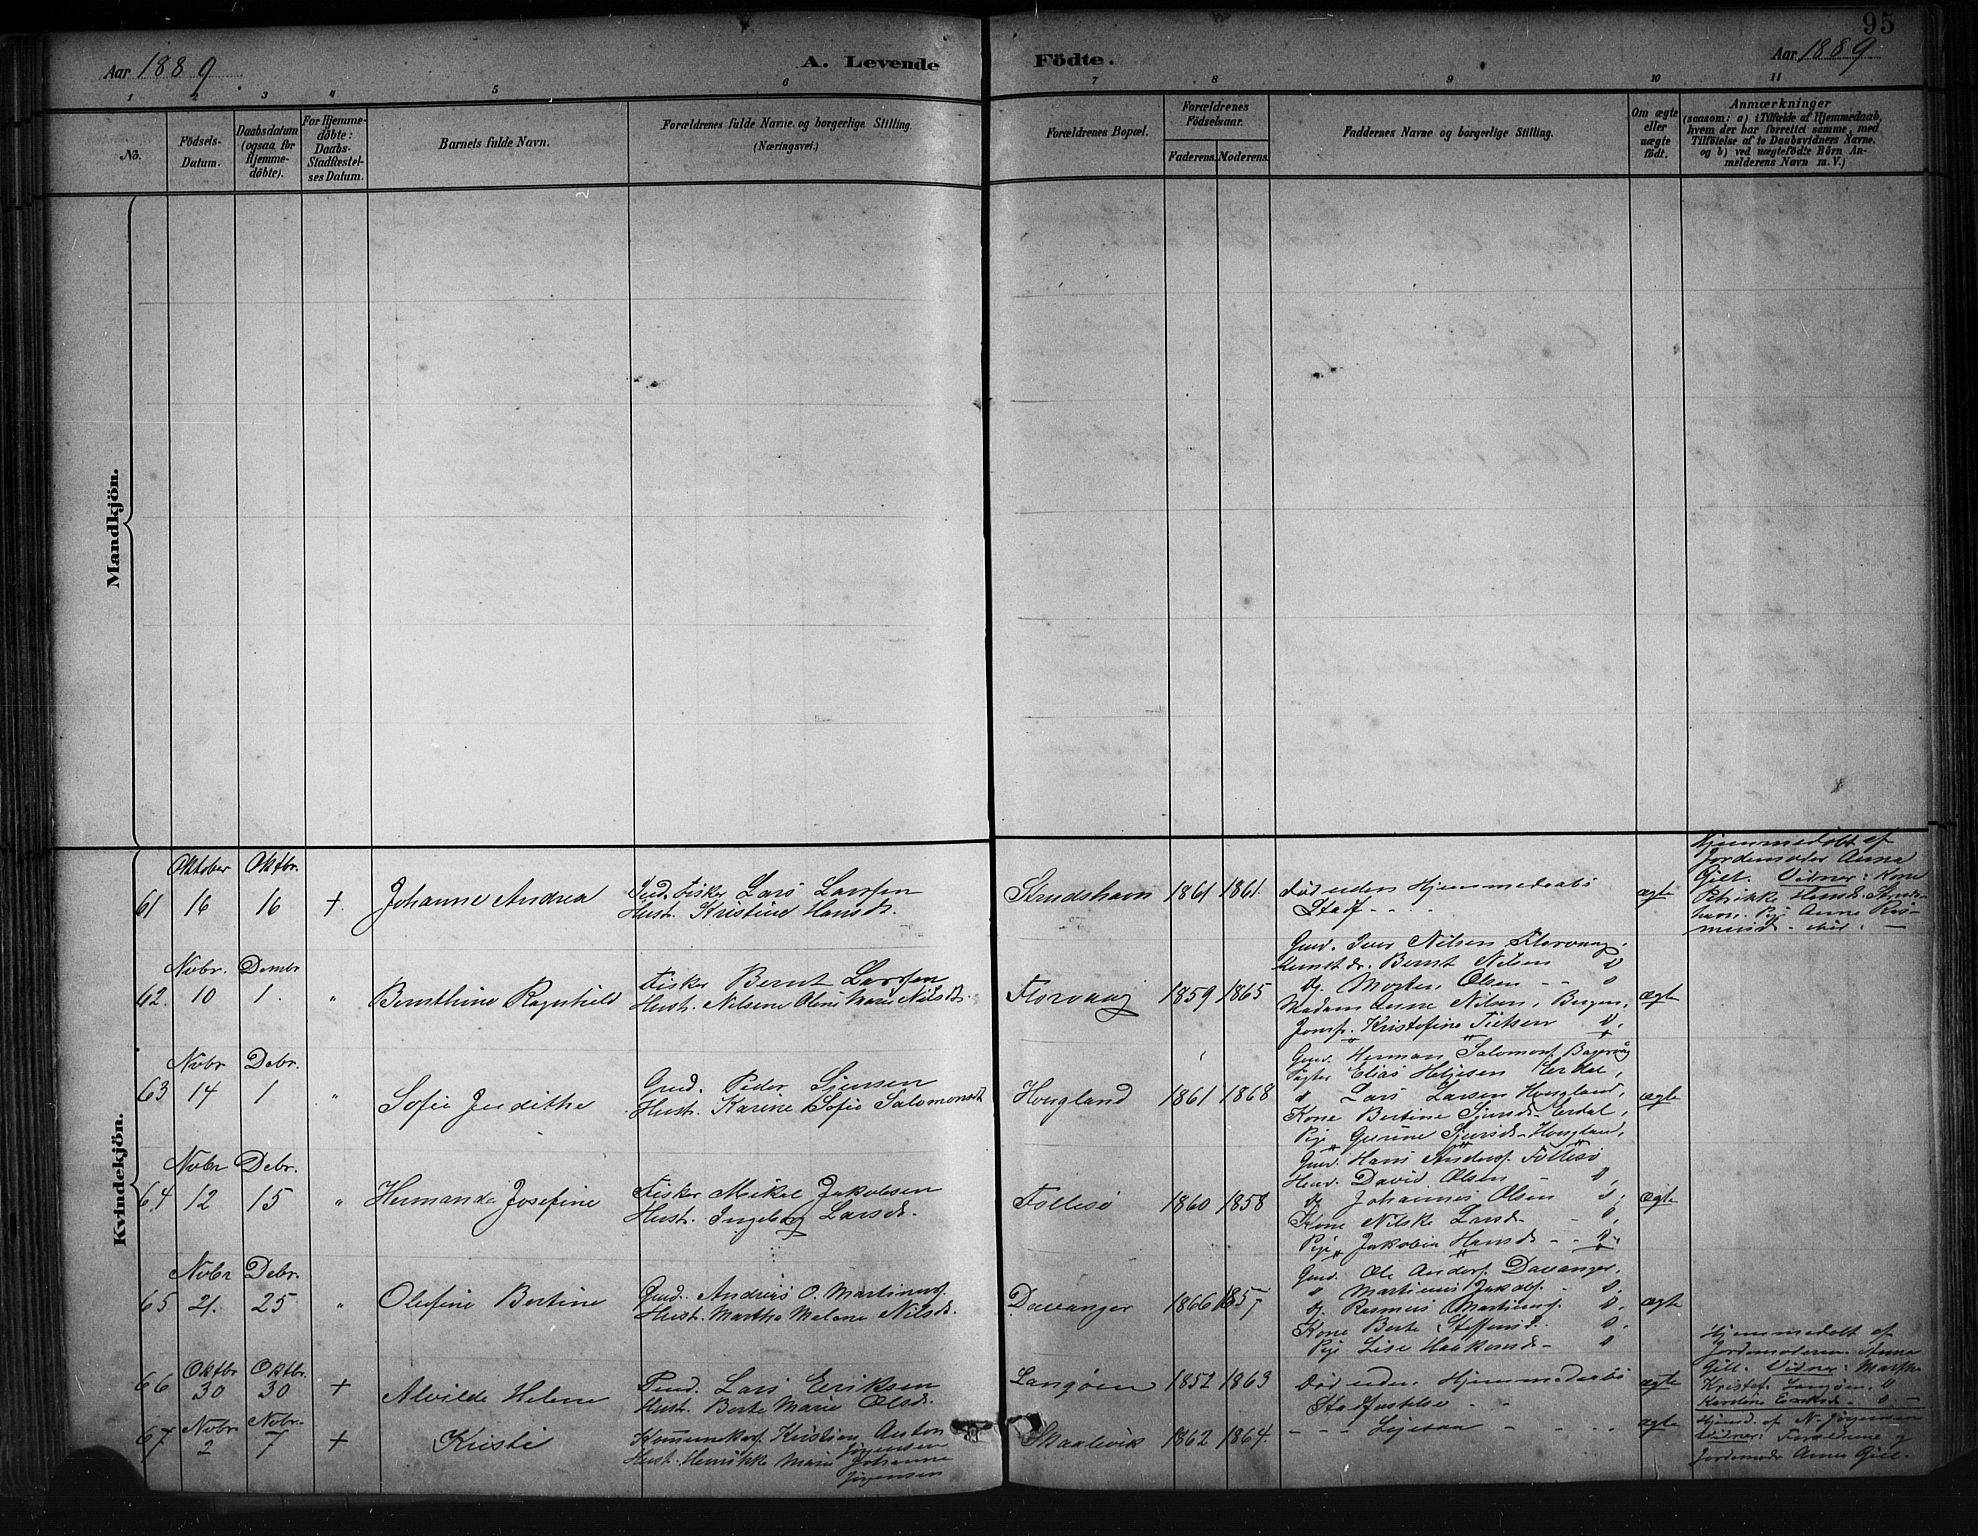 95
Aar 1889.
A. Levende
Födte.
Aar 1889
1 2 3 4 5 6 7 8 9 10 11
No.
Födsels-Datum.
Daabsdatum (ogsaa for Hjemme-döbte).
For Hjemme-döbte: Daabs-Stadfæstel-ses Datum.
Barnets fulde Navn.
Forældrenes fulde Navne og borgerlige Stilling. (Næringsvei.)
Forældrenes Bopæl.
Forældrenes Födselsaar.
Faderens. Moderens.
Faddernes Navne og borgerlige Stilling.
Om ægte eller uægte födt.
Anmærkninger
(saasom: a) i Tilfælde af Hjemmedaab,
hvem der har forrettet samme, med
Tilföielse af to Daabsvidners Navne.
og b) ved uægtefödte Börn An-
melderens Navn m. V.)
Mandkjön.
Kvindekjön.
61 Oktober 16 Oktbr. 16 + Johanne Andrea
Fisker Lars Larsen
Hust. Kristine Hansdt.
Strudshavn 1861 1861.
Död uden Hjemmedaabs
Stadf - - -
ægte
Hjemmedöbt af
Jordemoder Anna
Gjelt. Vidner: Kone
62. Nvbr. 10 Dembr 1. " Bernthine Ragnhild
Fisker Bernt Larsen
Hust. Nilsine Oline Marie Nilsdt.
Florvaag 1859 1865
Gmd. Iver Nilsen Florvaag.
Bernt Nilsen
Morten Olsen - -
Madam Anne Nilsen, Bergen,
Jomf. Kristofine
ægte
63 Nvbr 14 Debr. 1 " Sofie Judithe
Gmd. Peder Sjursen
Hust. Karine Sofie Salomonsdt
Hougland 1861 1868
Gmd. Herman Salomons.
Elias Erdal,
Lars Larsen Hougland,
Kone Bertine Sjursd. Erdal,
Pige Gurine Sjursd - Hougland,
ægte
64 Nvbr 12 Debr. 15 " Hermanda Josefine
Fisker Mikal Jakobsen
Hust. Ingeborg Larsdt.
Follesö 1860 1858
Gmd. Hans Anders. Follesö
David Olsen -
Johannes Olsen
Kone Nilske Larsd. -
Pige Jakobine Hansd - -
ægte
65 Nvbr 21. Debr. 25 " Olefine Bertine
Gmd. Andreas O. Martinus.
Hust. Martha Malene Nilsdt.
Davanger 1866 1857
Gmd. Ole Anders. Davanger,
Martinus Jakobs. -
Rasmus Martinus.
Kone Berte Steffensd.
Pige Lise Haakonsd -
ægte
66 Oktbr 30 Oktbr. 30 + Alvilde Helene
Lars Eriksen
Hust. Berte Marie Olsdt.
Langöen 1852 1863
Död uden Hjemmedaabs
Stadfæstelse - -
ægte
Hjemmedöbt af
Jordemoderen Anna
Gjelt. Vidner: Martha
Kristof. Langöen,
Karoline Eriksd -
67 Nvbr 2 Nvbr. 7 + Kristi
Kristian Anton
Jörgensen
Hust. Henrikke Marie Johanne
Jörgensen
Skaalevik 1862 1864.
- - - Ligesaa - - -
ægte
Hjemd. af N. Jörgensen
Vidner: Forældrene og
Jordemoder Anna Gjelt.